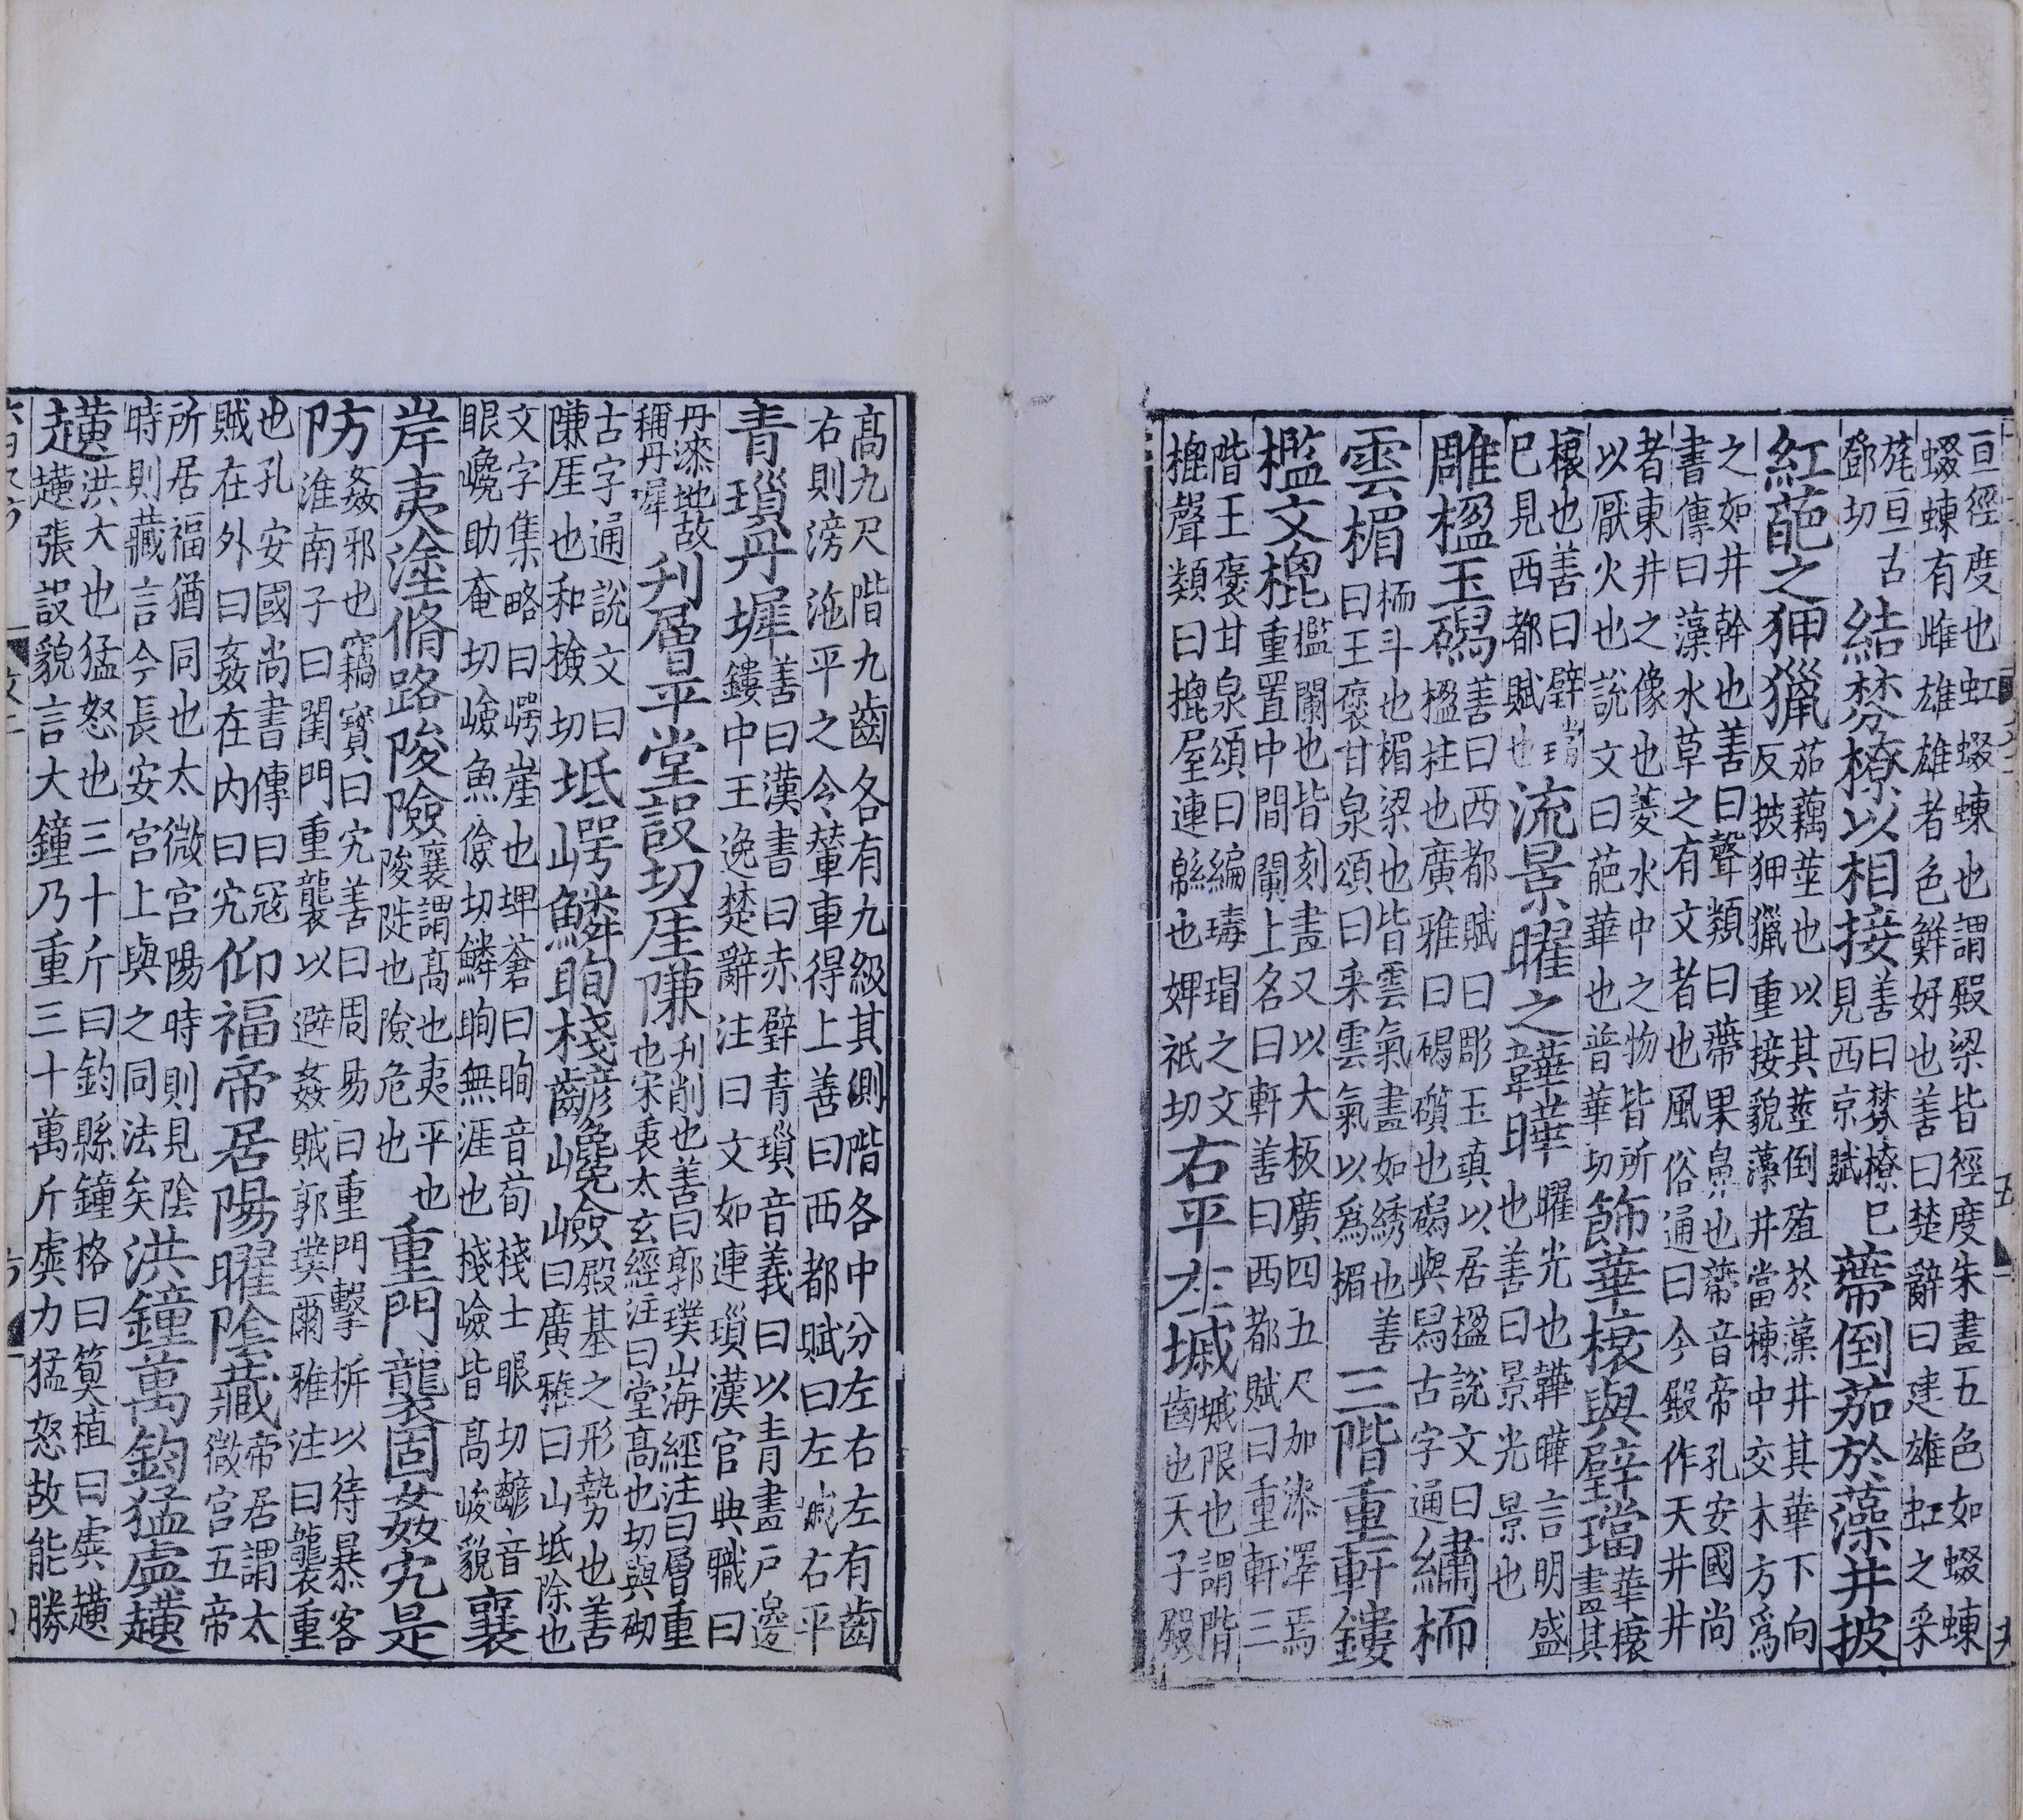 亘徑度也虹蝃蝀也謂殿梁皆徑度朱畫五色如蝃蝀
蝃蝀有雌雄雄者色鮮好也善曰楚辭曰建雄虹之采
旄亘古鄧切結棼橑以相接善曰棼橑已見西京賦蔕倒茄於藻井披
紅葩之狎獵茄藕莖也以其莖倒殖於藻井其華下向反披狎獵重接貌藻井當棟中交木方爲
之如井幹也善曰聲類曰蔕果鼻也蔕音帝孔安國尚
書傳曰藻水草之有文者也風俗通曰今殿作天井井
者東井之像也菱水中之物皆所以厭火也說文曰葩華也普華切飾華榱與璧璫華榱畫其
榱也善曰璧璫已見西都賦也流景曜之韡曄曜光也韡曄言明盛也善曰景光景也
雕楹玉磶善曰西都賦曰彫玉瑱以居楹說文曰楹柱也廣雅曰碣礩也磶與舄古字通繡栭
雲楣栭斗也楣梁也皆雲氣畫如綉也善曰王襃甘泉頌曰采雲氣以爲楣三階重軒鏤
檻文㮰檻闌也皆刻畫又以大板廣四五尺加漆澤焉重置中間闌上名曰軒善曰西都賦曰重軒三
階王襃甘泉頌曰編瑇瑁之文㮰聲類曰㮰屋連緜也婢祇切右平左墄墄限也謂階齒也天子殿
高九尺階九齒各有九級其側階各中分左右左有齒
右則滂沲平之令輦車得上善曰西都賦曰左墄右平
青瑣丹墀善曰漢書曰赤壁青瑣音義曰以青畫戶邊鏤中王逸楚辭注曰文如連瑣漢官典職曰
丹漆地故稱丹墀刋層平堂設切厓隒刋削也善曰郭璞山海經注曰層重也宋衷太玄經注曰堂高也切與砌
古字通說文曰隒厓也和檢切坻崿鱗眴棧齴巉嶮殿基之形勢也善曰廣雅曰山坻除也
文字集略曰崿崖也埤蒼曰眴音荀棧士眼切齴音眼巉助奄切嶮魚儉切鱗眴無涯也棧嶮皆高峻貌襄
岸夷塗脩路陖險襄謂高也夷平也陖陡也險危也重門襲固姦宄是
防姦邪也竊寶曰宄善曰周易曰重門擊柝以待暴客淮南子曰閨門重襲以避姦賊郭璞爾雅注曰襲重
也孔安國尚書傳曰寇賊在外曰姦在内曰宄仰福帝居陽曜陰藏帝居謂太微宫五帝
所居福猶同也太微宫陽時則見陰時則藏言今長安宫上與之同法矣洪鐘萬鈞猛虡趪
趪洪大也猛怒也三十斤曰鈞縣鐘格曰筍植曰虡趪趪張設貌言大鐘乃重三十萬斤虡力猛怒故能勝